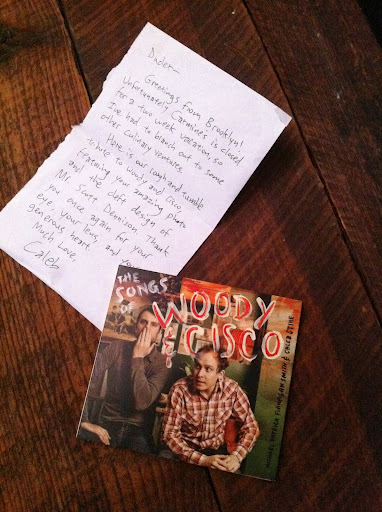 Duder—
Greetings from Brooklyn!
Unfortunately Carmine's is closed
for a two week vacation, so
I've had to branch out to some
other culinary ventures.
Here is our rough and tumble
tribute to Woody and Cisco
Framing your amazing photo
and the cleft design of
Mr. Scott Dennison. Thank
you once again for your
eye, your lens, and
generous heart.
Much Love,
Caleb
THE
SONGS
OF
WOODY
& CISCO
MICHAEL PATRICK FLANAGAN SMITH & CALEB STINE